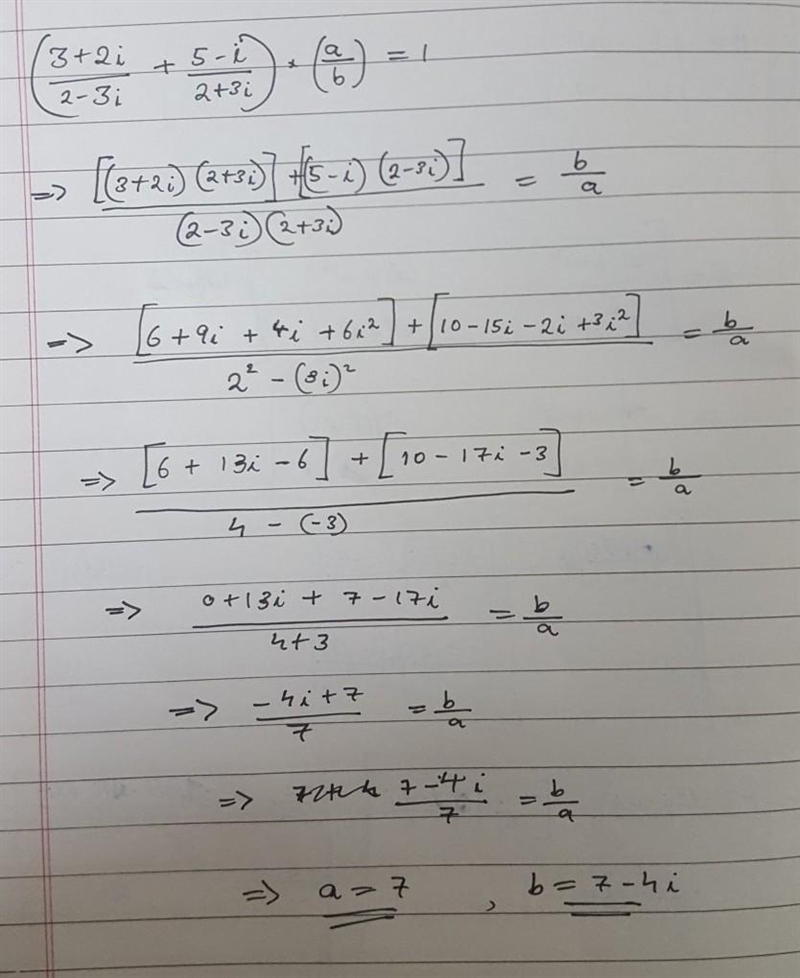 (3+2i / 2-3i + 5-i / 2+3i) * (a/b) = 1
=> [(3+2i)(2+3i)] + [(5-i)(2-3i)] / (2-3i)(2+3i) = b/a
=> [6+9i+4i+6i²] + [10-15i-2i+3i²] / 2² - (3i)² = b/a
=> [6+13i-6] + [10-17i-3] / 4-(-3) = b/a
=> 0+13i+7-17i / 4+3 = b/a
=> -4i+7 / 7 = b/a
=> 7-4i / 7 = b/a
=> a=7 , b=7-4i